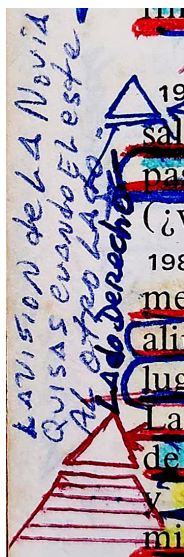 LA VISION de LA NoviA
QUISAS cuANdo EL este
AL OTRO LADO.
LAdo DeRecho
19
sal
pas
(¿v
198
me
alim
lug
La
de
y
mi